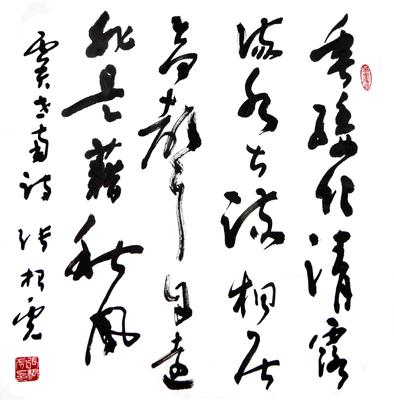 垂緌飲清露
流響出疏桐居
高聲自遠
非是藉秋風
虞世南詩 張